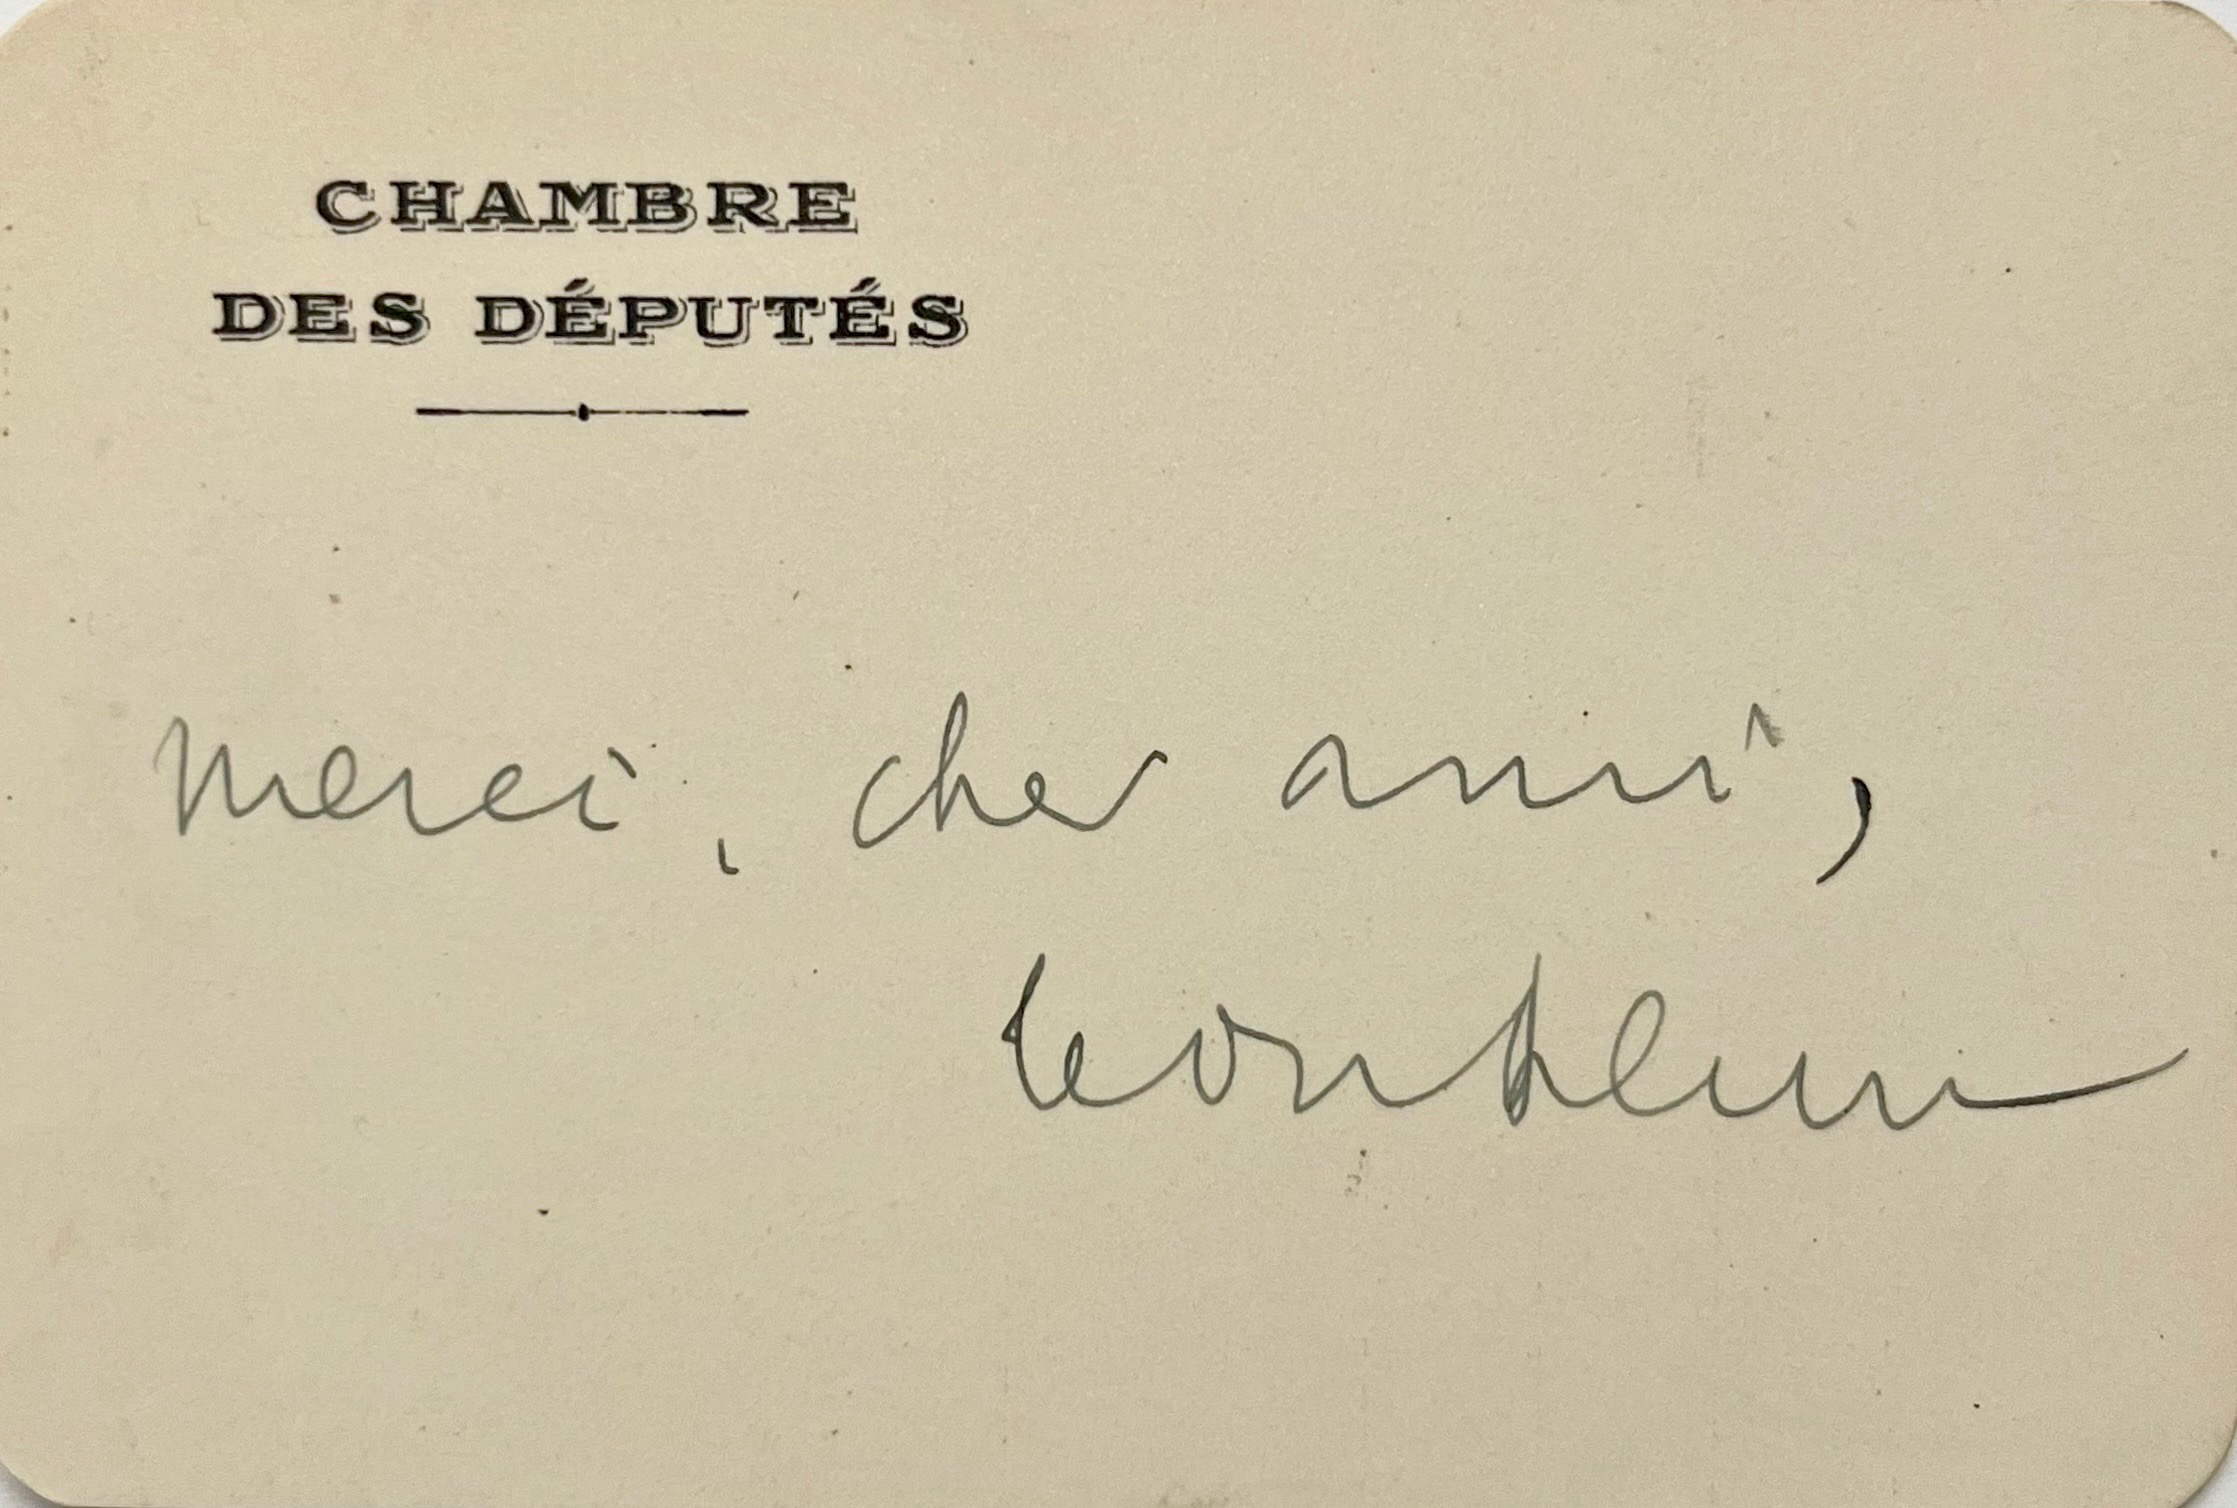 CHAMBRE
DES DÉPUTÉS
Merci, cher ami,
Léon Blum